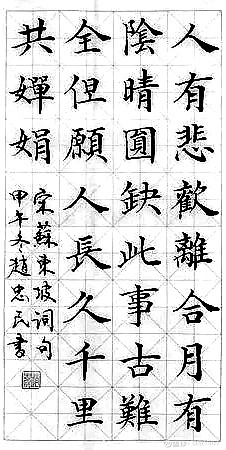 人有悲歡離合月有
陰晴圓缺此事古難
全但願人長久千里
共嬋娟
宋蘇東坡詞句
甲午冬趙忠民書